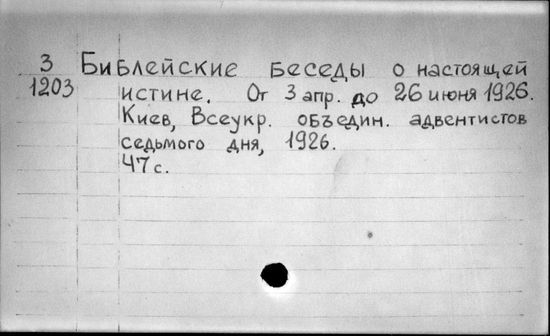 3 Библейские беседы о настоящей
1203 истине. От 3 апр. до 26 июня 1926.
Киев, Всеукр. объедин. адвентистов
седьмого дня, 1926.
47 с.